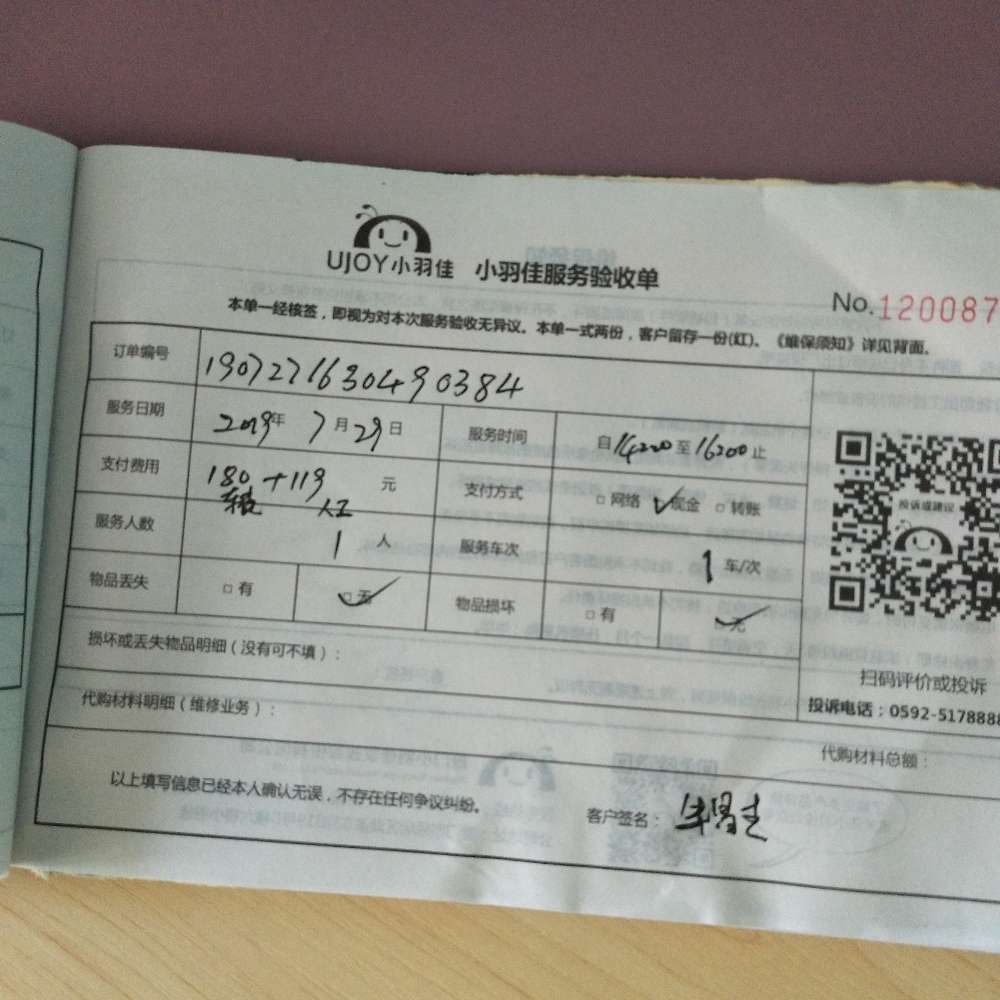 UJOY小羽佳 小羽佳服务验收单
No.120087
本单一经核签，即视为对本次服务验收无异议。本单一式两份，客户留存一份(红)。《维保须知》详见背面。
订单编号 1907271630490384
服务日期 2019年 7月29日 服务时间 自14200至16200止
支付费用 180+119 元 支付方式 □网络 ☑现金 □转账
人工
服务人数 1人 服务车次 1车/次
物品丢失 □有 ☑无 物品损坏 □有 ☑无
损坏或丢失物品明细（没有可不填）：
代购材料明细（维修业务）：
代购材料总额：
以上填写信息已经本人确认无误，不存在任何争议纠纷。 客户签名：
投诉或建议
扫码评价或投诉
投诉电话：0592-5178888